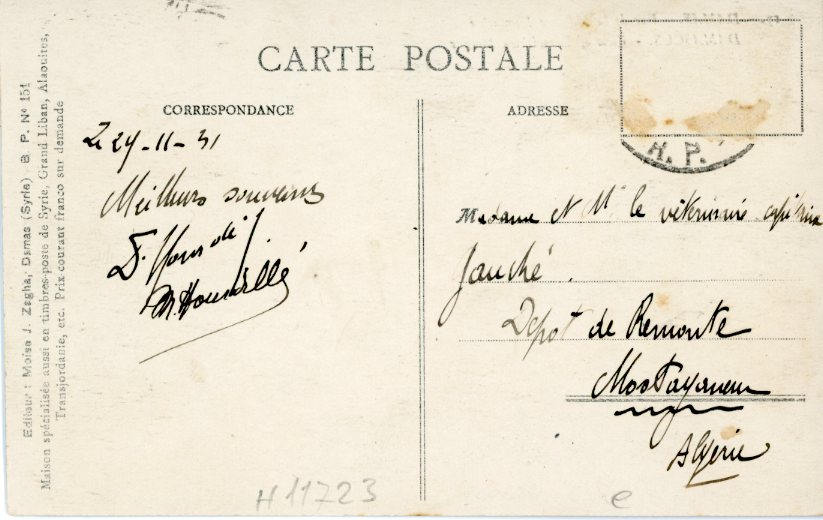 CARTE POSTALE
CORRESPONDANCE
ADRESSE
Le 24-11-31
Meilleurs souvenirs
H. P.
Madame et Mr le vétérinaire capitaine
Jauché.
Dépot de Remonte
Mostaganem
Algérie
Editeur : Moïse J. Zagha, Damas (Syrie) B. P. Nº 151
Maison spécialisée aussi en timbres-poste de Syrie, Grand Liban, Alaouites,
Transjordanie, etc. Prix-courant franco sur demande
H 11723
e